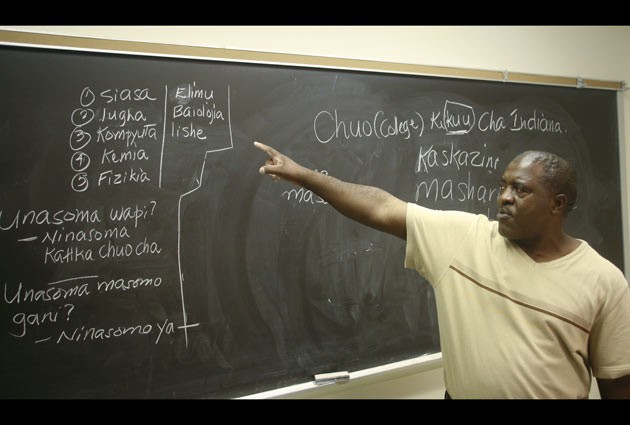 ① Siasa
② lugha
③ Kompyuta
④ Kemia
⑤ Fizikia
Elimu
Baiolojia
lishe
Unasoma wapi?
- Ninasoma
Katika chuo cha
Unasoma masomo
gani?
- Ninasoma ya
Chuo (College) Kikuu Cha Indiana.
Kaskazini